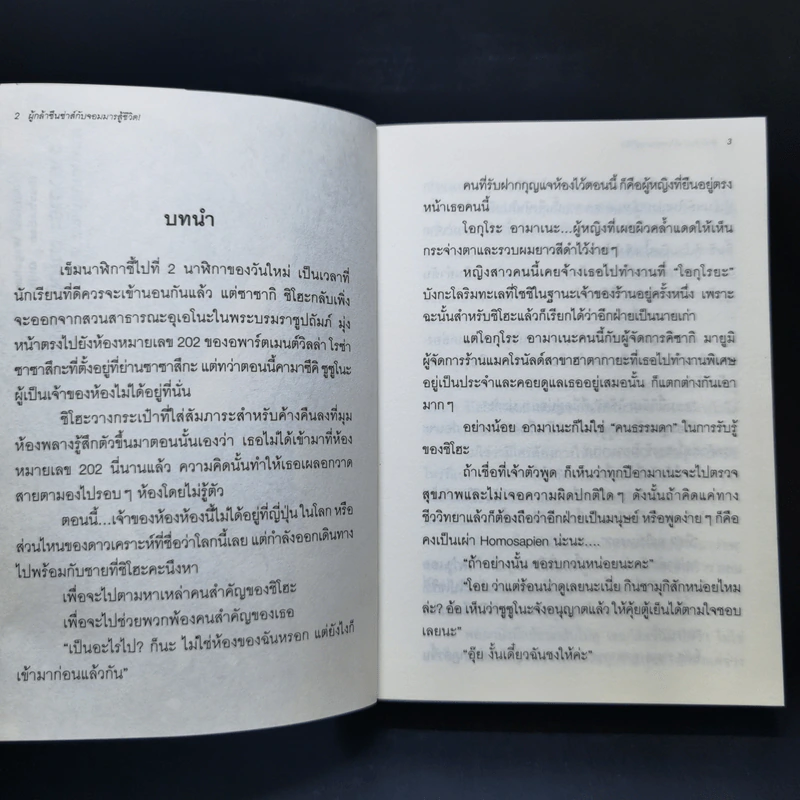 2 ผู้กล้าซึนซ่าส์กับจอมมารสู้ชีวิต!
บทนำ
เข็มนาฬิกาชี้ไปที่ 2 นาฬิกาของวันใหม่ เป็นเวลาที่
นักเรียนที่ดีควรจะเข้านอนกันแล้ว แต่ซาซากิ ชิโฮะกลับเพิ่ง
จะออกจากสวนสาธารณะอุเอโนะในพระบรมราชูปถัมภ์ มุ่ง
หน้าตรงไปยังห้องหมายเลข 202 ของอพาร์ตเมนต์วิลล่า โรซ่า
ซาซาสึกะที่ตั้งอยู่ที่ย่านซาซาสึกะ แต่ทว่าตอนนี้คามาซึคิ ซูซูโนะ
ผู้เป็นเจ้าของห้องไม่ได้อยู่ที่นั่น
ชิโฮะวางกระเป๋าที่ใส่สัมภาระสำหรับค้างคืนลงที่มุม
ห้องพลางรู้สึกตัวขึ้นมาตอนนั้นเองว่า เธอไม่ได้เข้ามาที่ห้อง
หมายเลข 202 นี่นานแล้ว ความคิดนั้นทำให้เธอเผลอกวาด
สายตามองไปรอบๆ ห้องโดยไม่รู้ตัว
ตอนนี้...เจ้าของห้องห้องนี้ไม่ได้อยู่ที่ญี่ปุ่น ในโลก หรือ
ส่วนไหนของดาวเคราะห์ที่ชื่อว่าโลกนี้เลย แต่กำลังออกเดินทาง
ไปพร้อมกับชายที่ชิโฮะคะนึงหา
เพื่อจะไปตามหาเหล่าคนสำคัญของชิโฮะ
เพื่อจะไปช่วยพวกพ้องคนสำคัญของเธอ
“เป็นอะไรไป? ก็นะ ไม่ใช่ห้องของฉันหรอก แต่ยังไงก็
เข้ามาก่อนแล้วกัน”
3
คนที่รับฝากกุญแจห้องไว้ตอนนี้ ก็คือผู้หญิงที่ยืนอยู่ตรง
หน้าเธอคนนี้
โอกุโระ อามาเนะ...ผู้หญิงที่เผยผิวคล้ำแดดให้เห็น
กระจ่างตาและรวบผมยาวสีดำไว้ง่ายๆ
หญิงสาวคนนี้เคยจ้างเธอไปทำงานที่ “โอกุโรยะ”
บังกะโลริมทะเลที่โชชิในฐานะเจ้าของร้านอยู่ครั้งหนึ่ง เพราะ
ฉะนั้นสำหรับชิโฮะแล้วก็เรียกได้ว่าอีกฝ่ายเป็นนายเก่า
แต่โอกุโระ อามาเนะคนนี้กับผู้จัดการคิซากิ มายูมิ
ผู้จัดการร้านแมคโรนัลด์สาขาฮาตากายะที่เธอไปทำงานพิเศษ
อยู่เป็นประจำและคอยดูแลเธออยู่เสมอนั้น ก็แตกต่างกันเอา
มากๆ
อย่างน้อย อามาเนะก็ไม่ใช่ “คนธรรมดา” ในการรับรู้
ของชิโฮะ
ถ้าเชื่อที่เจ้าตัวพูด ก็เห็นว่าทุกปีอามาเนะจะไปตรวจ
สุขภาพและไม่เจอความผิดปกติใดๆ ดังนั้นถ้าคิดแค่ทาง
ชีววิทยาแล้วก็ต้องถือว่าอีกฝ่ายเป็นมนุษย์ หรือพูดง่ายๆ ก็คือ
คงเป็นเผ่า Homosapien น่ะนะ....
“ถ้าอย่างนั้น ขอรบกวนหน่อยนะคะ”
“โอย ว่าแต่ร้อนน่าดูเลยนะเนี่ย กินชามุกิสักหน่อยไหม
ล่ะ? อ้อ เห็นว่าซูซูโนะจังอนุญาตแล้ว ให้คุ้ยตู้เย็นได้ตามใจชอบ
เลยนะ”
“อุ๊ย งั้นเดี๋ยวฉันชงให้ค่ะ”